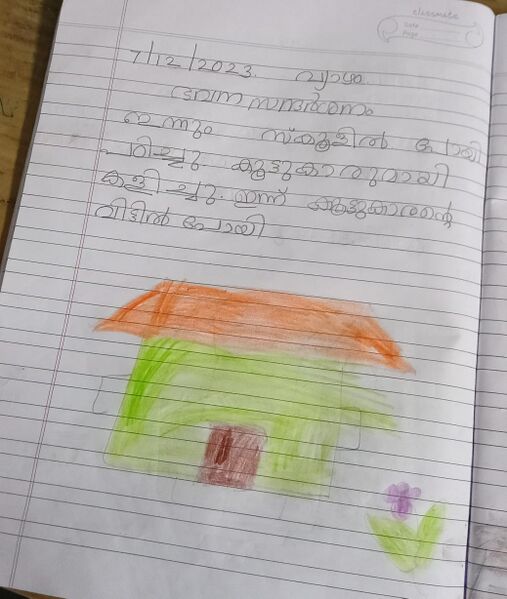 classmate
Date
Page
7/12/2023. വ്യാഴം
ഭവന സന്ദർശനം
ഇന്നും സ്കൂളിൽ പോയി
പഠിച്ചു കൂട്ടുകാരുമായി
കളിച്ചു. ഇന്ന് കൂട്ടുകാരന്റെ
വീട്ടിൽ പോയി